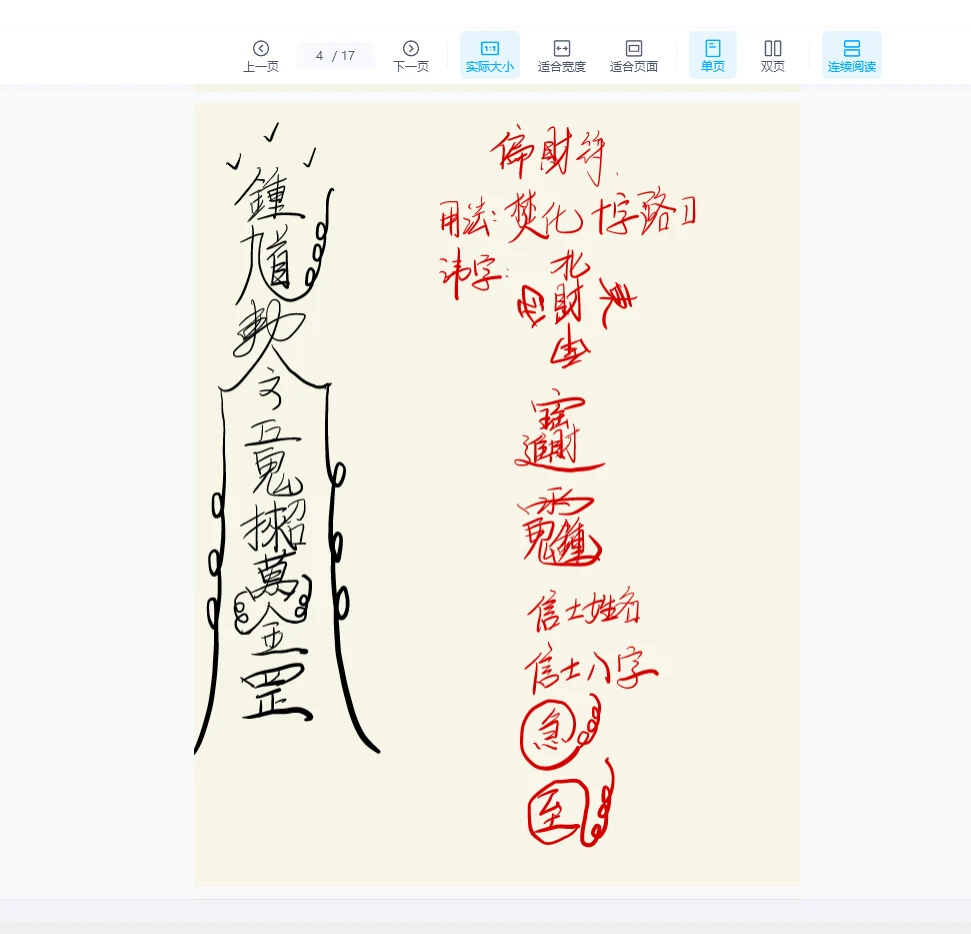 上一页
4 / 17
下一页
1:1
实际大小
适合宽度
适合页面
单页
双页
连续阅读
鍾
馗
勅
文
五
鬼
招
萬
金
罡
偏財符
用法:焚化十字路口
讳字:
北
財
信士姓名
信士八字
急
至